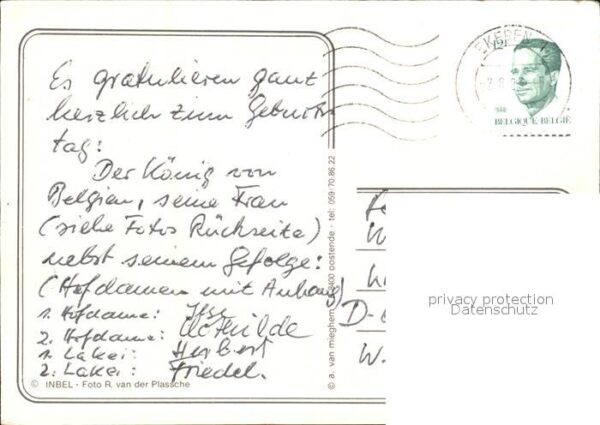 Es gratulieren ganz
herzlich zum Geburts
tag:
Der König von
Belgien, seine Frau
(siehe Fotos Rückseite)
nebst seinem Gefolge:
(Hofdamen mit Anhang)
1. Hofdame: Ilse
2. Hofdame: Clothilde
1. Lakei: Herbert
2. Lakei: Friedel.
© INBEL - Foto R. van der Plassche
© a. van mieghem 8400 oostende - tel: 059-70.86.22
EKEREN
BELGIQUE-BELGIË
D-
W.
privacy protection
Datenschutz